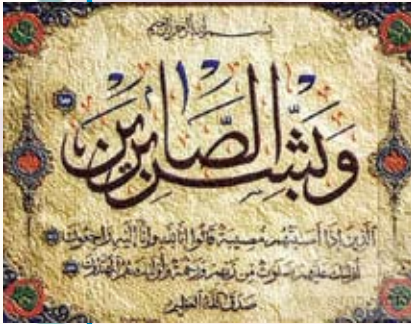 بسم الله الرحمن الرحيم
وَبَشِّرِ الصَّابِرِينَ
الَّذِينَ إِذَا أَصَابَتْهُمْ مُصِيبَةٌ قَالُوا إِنَّا لِلَّهِ وَإِنَّا إِلَيْهِ رَاجِعُونَ
أُولَٰئِكَ عَلَيْهِمْ صَلَوَاتٌ مِنْ رَبِّهِمْ وَرَحْمَةٌ وَأُولَٰئِكَ هُمُ الْمُهْتَدُونَ
صدق الله العظيم